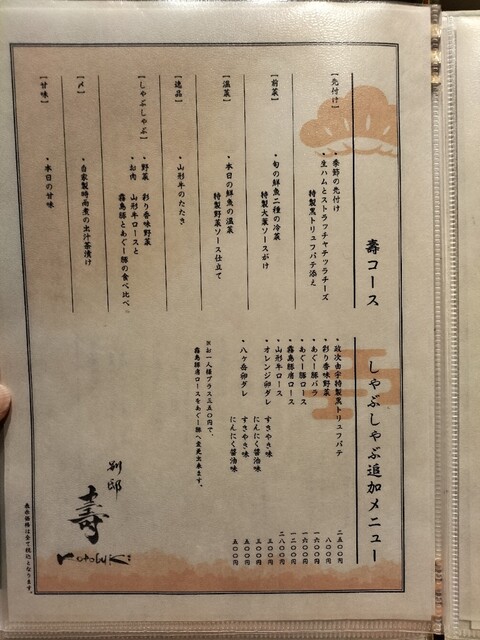 壽コース
【先付け】
・季節の先付け
・生ハムとストラッチャテッラチーズ
特製黒トリュフパテ添え
【前菜】
・旬の鮮魚二種の冷菜
特製大葉ソースがけ
【温菜】
・本日の鮮魚の温菜
特製野菜ソース仕立て
【逸品】
・山形牛のたたき
【しゃぶしゃぶ】
・野菜 彩り香味野菜
・お肉 山形牛ロースと
霧島豚とあぐー豚の食べ比べ。
【〆】
・自家製時雨煮の出汁茶漬け
【甘味】
・本日の甘味
しゃぶしゃぶ追加メニュー
・政次由宇特製黒トリュフパテ 二五〇〇円
・彩り香味野菜 八〇〇円
・あぐー豚バラ 一六〇〇円
・あぐー豚ロース 一六〇〇円
・霧島豚肩ロース 一二〇〇円
・山形牛ロース 二八〇〇円
・オレンジ卵ダレ すきやき味 三〇〇円
にんにく醤油味 三〇〇円
・八ヶ岳卵ダレ すきやき味 五〇〇円
にんにく醤油味 五〇〇円
※お一人様プラス三五〇円で、
霧島豚肩ロースをあぐー豚へ変更出来ます。
別邸
壽
Kotobuki
表示価格は全て税込となります。